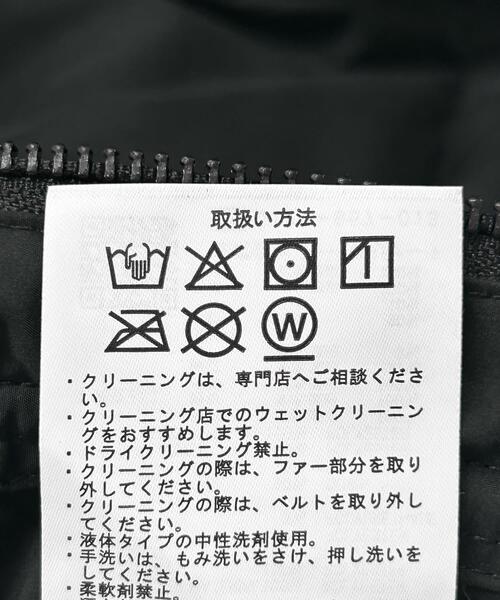 取扱い方法
W
・クリーニングは、専門店へご相談くださ
い。
・クリーニング店でのウェットクリーニン
グをおすすめします。
・ドライクリーニング禁止。
・クリーニングの際は、ファー部分を取り
外してください。
・クリーニングの際は、ベルトを取り外し
てください。
・液体タイプの中性洗剤使用。
・手洗いは、もみ洗いをさけ、押し洗いを
してください。
・柔軟剤禁止。